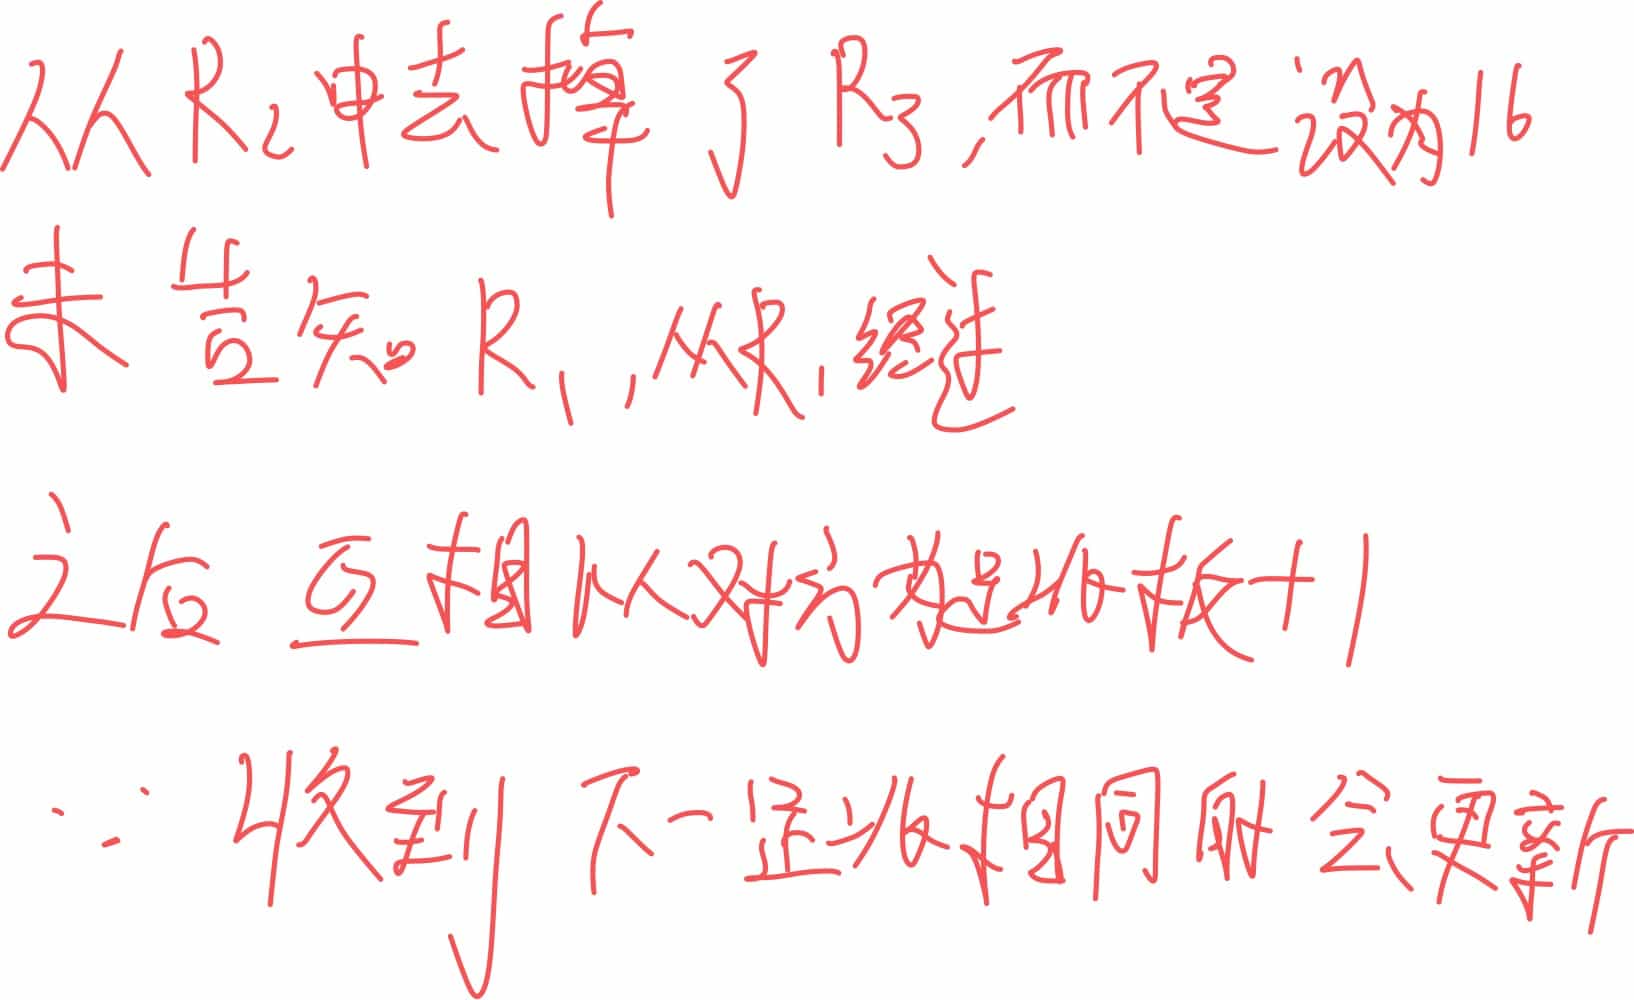 从R2中去掉了R3,而不是设为16
未告知R1,从R1继续
之后 互相以对方发起跳板+1
∵收到下一跳相同时会更新